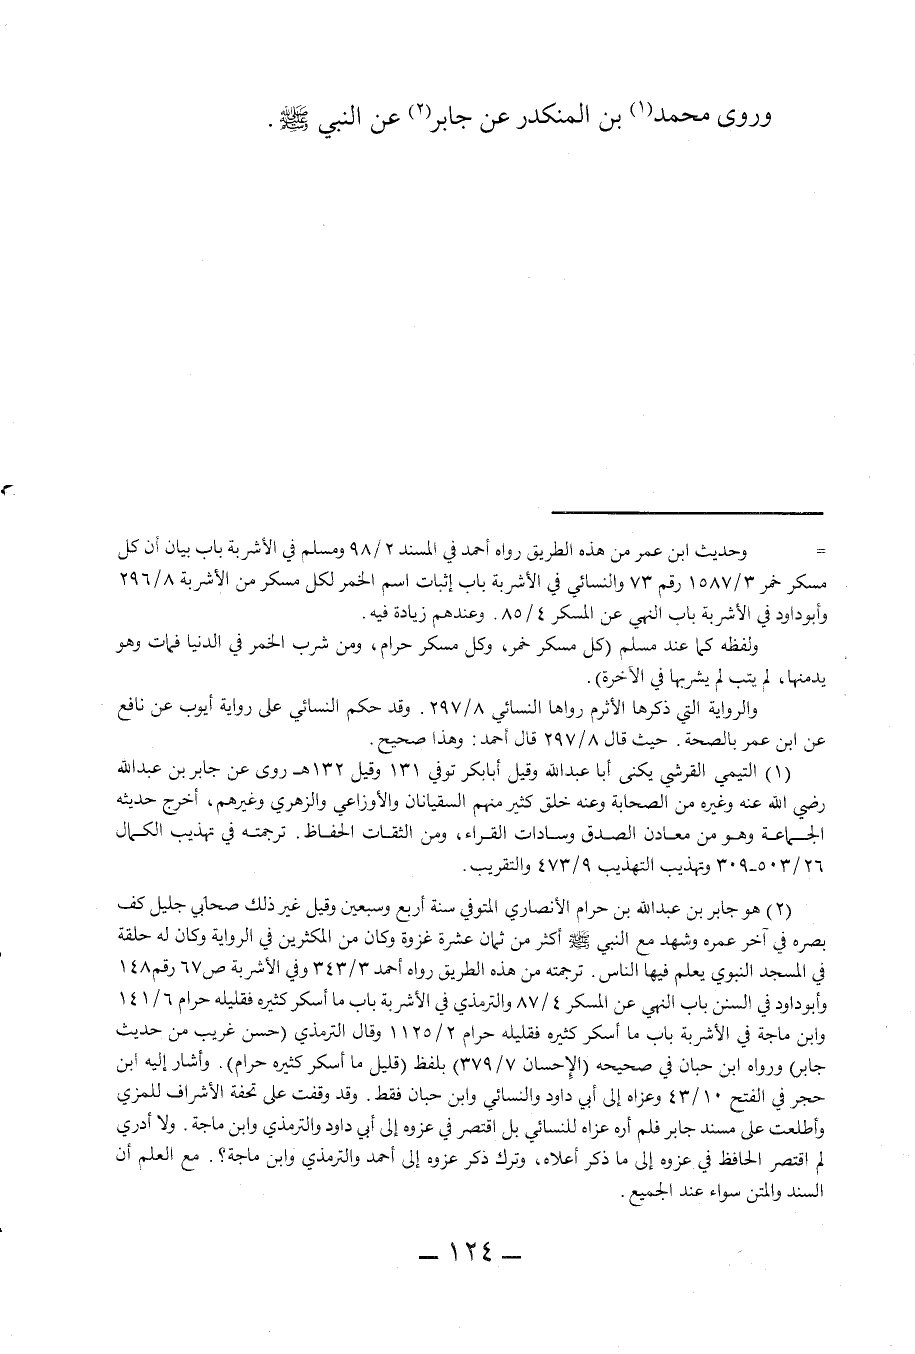 وروى محمد(١) بن المنكدر عن جابر(٢) عن النبي ﷺ .
= وحديث ابن عمر من هذه الطريق رواه أحمد في المسند ٩٨/٢ ومسلم في الأشربة باب بيان أن كل
مسكر خمر ١٥٨٧/٣ رقم ٧٣ والنسائي في الأشربة باب إثبات اسم الخمر لكل مسكر من الأشربة ٢٩٦/٨
وأبوداود في الأشربة باب النهي عن المسكر ٨٥/٤ . وعندهم زيادة فيه.
ولفظه كما عند مسلم (كل مسكر خمر، وكل مسكر حرام، ومن شرب الخمر في الدنيا فمات وهو
يدمنها، لم يتب لم يشربها في الآخرة).
والرواية التي ذكرها الأثرم رواها النسائي ٢٩٧/٨ . وقد حكم النسائي على رواية أيوب عن نافع
عن ابن عمر بالصحة. حيث قال ٢٩٧/٨ قال أحمد: وهذا صحيح.
(١) التيمي القرشي يكنى أبا عبدالله وقيل أبابكر توفي ١٣١ وقيل ١٣٢هـ روى عن جابر بن عبدالله
رضي الله عنه وغيره من الصحابة وعنه خلق كثير منهم السفيانان والأوزاعي والزهري وغيرهم، أخرج حديثه
الجماعة وهو من معادن الصدق وسادات القراء، ومن الثقات الحفاظ. ترجمته في تهذيب الكمال
٥٠٣/٢٦-٣٠٩ وتهذيب التهذيب ٤٧٣/٩ والتقريب.
(٢) هو جابر بن عبدالله بن حرام الأنصاري المتوفي سنة أربع وسبعين وقيل غير ذلك صحابي جليل كف
بصره في آخر عمره وشهد مع النبي ﷺ أكثر من ثمان عشرة غزوة وكان من المكثرين في الرواية وكان له حلقة
في المسجد النبوي يعلم فيها الناس. ترجمته من هذه الطريق رواه أحمد ٣٤٣/٣ وفي الأشربة ص٦٧ رقم١٤٨
وأبوداود في السنن باب النهي عن المسكر ٨٧/٤ والترمذي في الأشربة باب ما أسكر كثيره فقليله حرام ١٤١/٦
وابن ماجة في الأشربة باب ما أسكر كثيره فقليله حرام ١١٢٥/٢ وقال الترمذي (حسن غريب من حديث
جابر) ورواه ابن حبان في صحيحه (الإحسان ٣٧٩/٧) بلفظ (قليل ما أسكر كثيره حرام). وأشار إليه ابن
حجر في الفتح ٤٣/١٠ وعزاه إلى أبي داود والنسائي وابن حبان فقط. وقد وقفت على تحفة الأشراف للمزي
وأطلعت على مسند جابر فلم أره عزاه للنسائي بل اقتصر في عزوه إلى أبي داود والترمذي وابن ماجة. ولا أدري
لم اقتصر الحافظ في عزوه إلى ما ذكر أعلاه، وترك ذكر عزوه إلى أحمد والترمذي وابن ماجة؟. مع العلم أن
السند والمتن سواء عند الجميع.
— ١٢٤ —